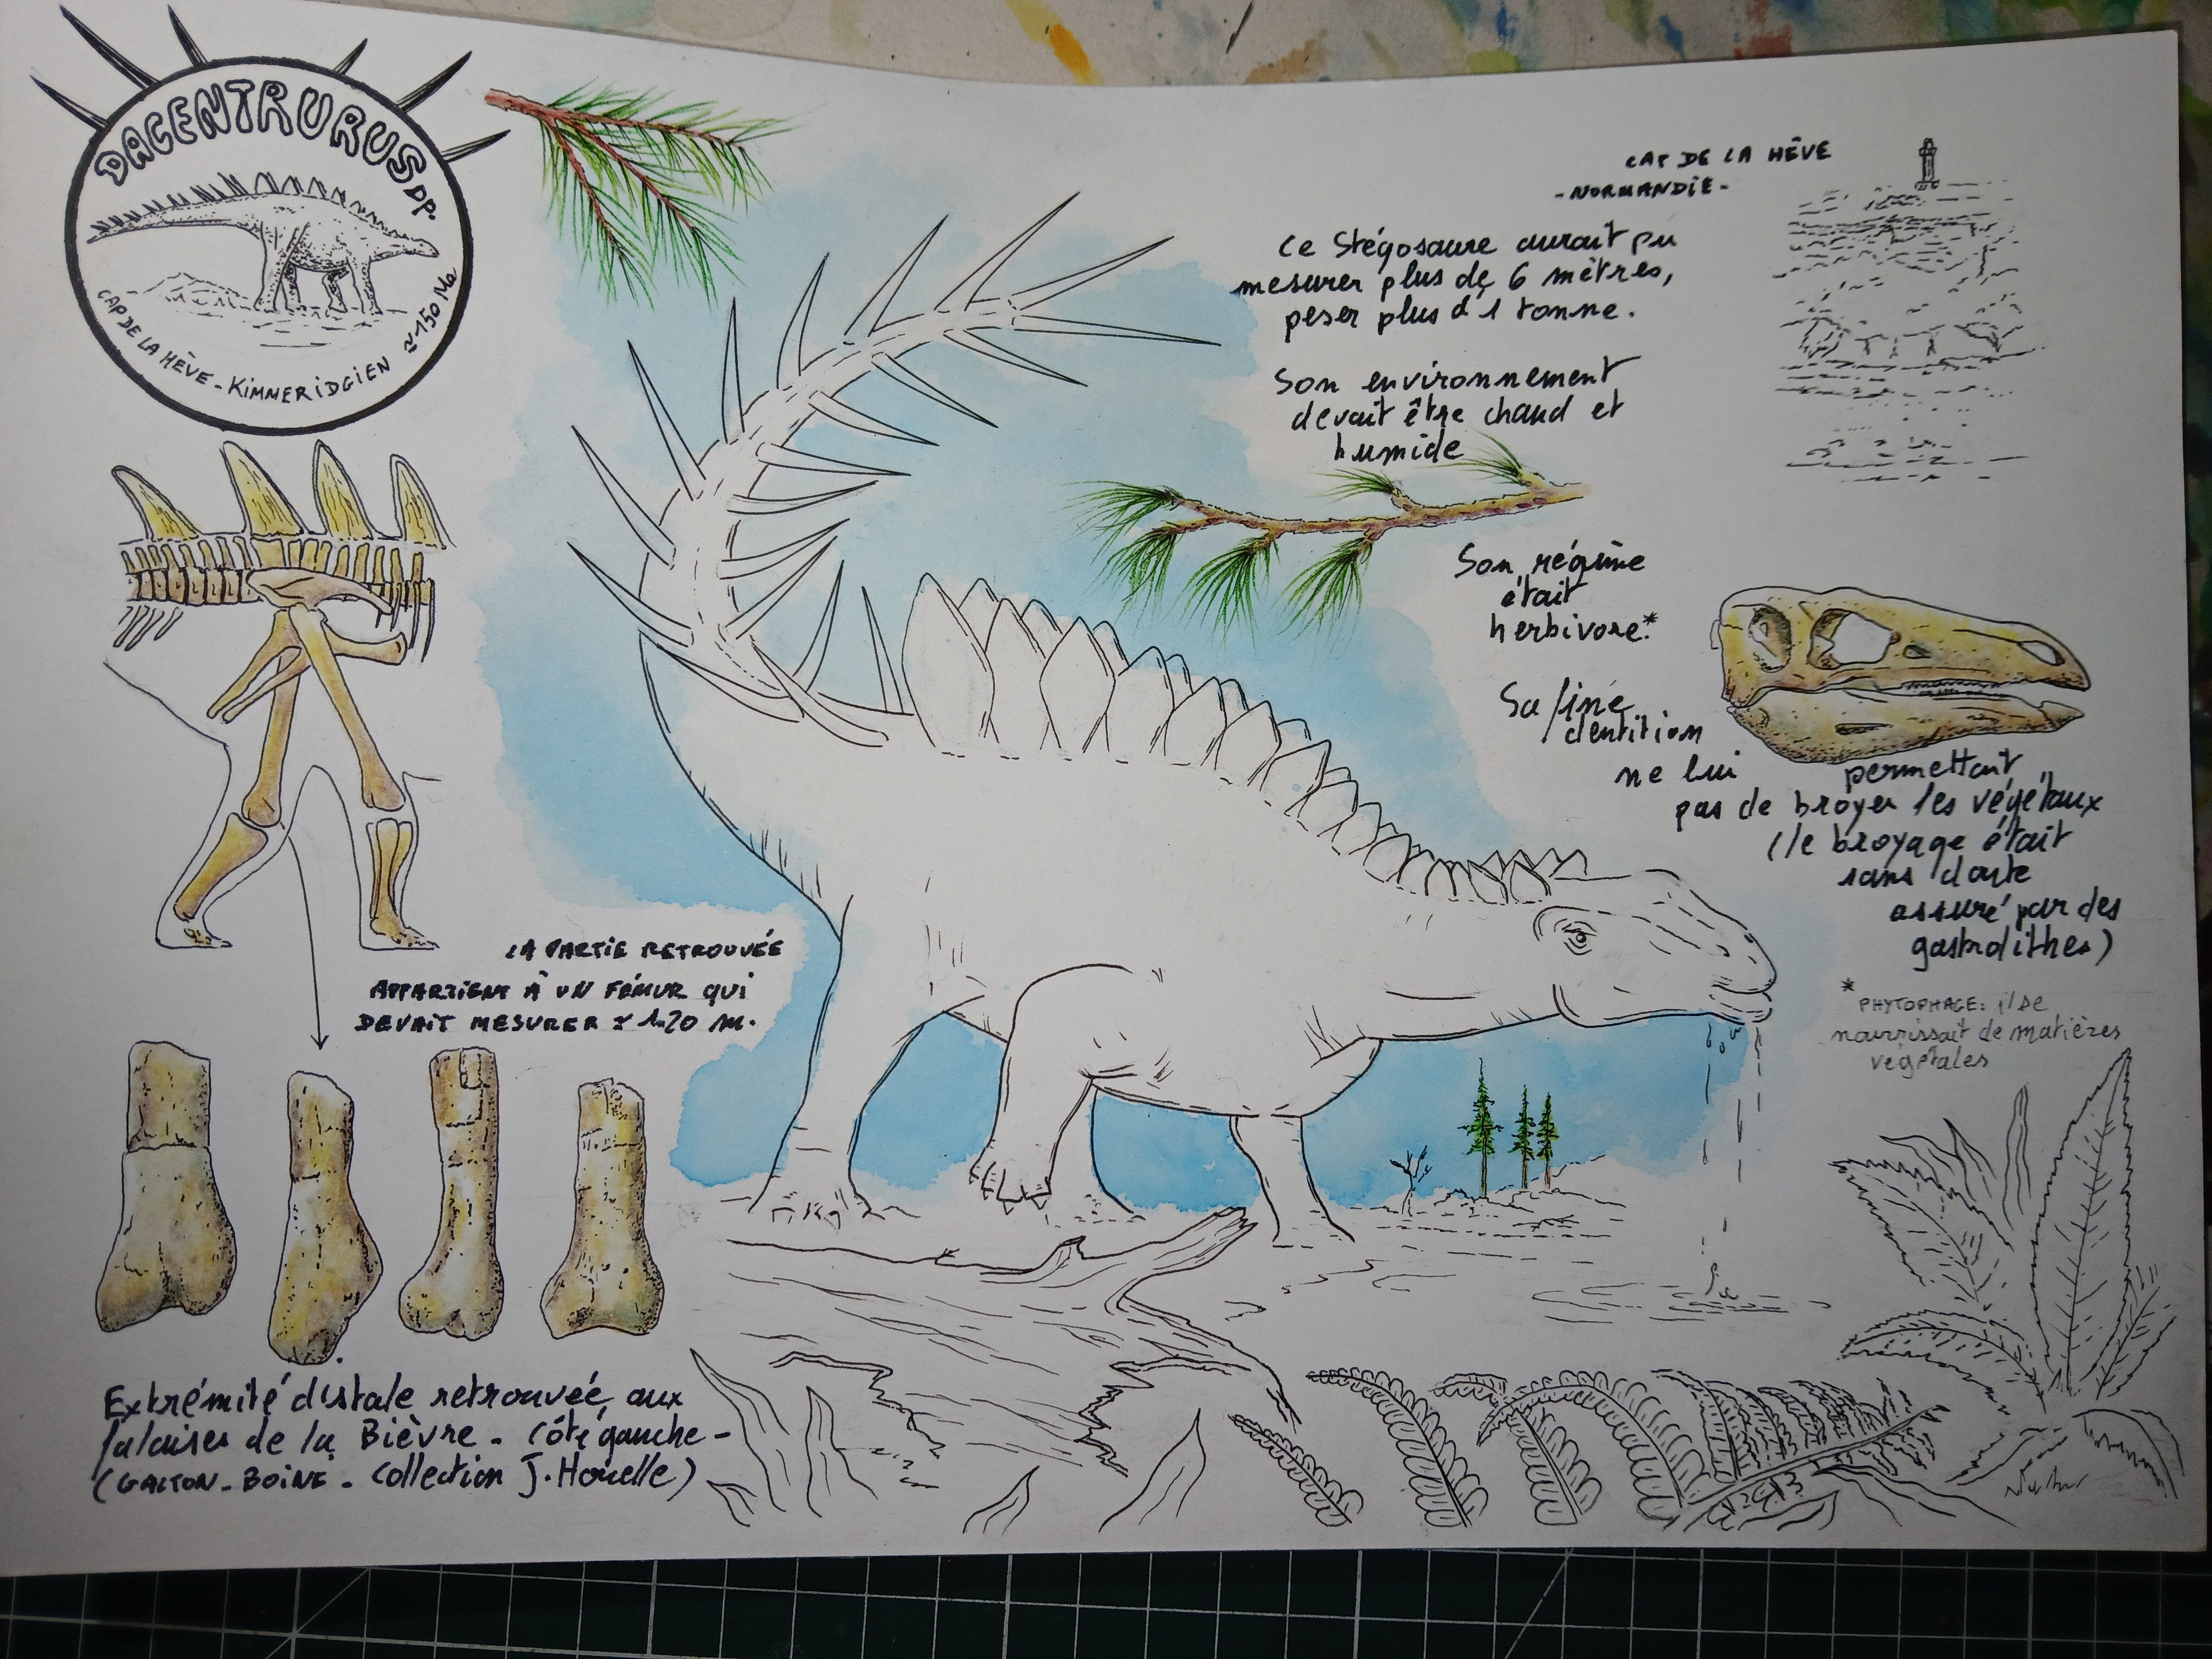 DACENTRURUS SP.
CAP DE LA HÈVE - KIMMERIDGIEN ≈ 150 Ma
CAP DE LA HÈVE
- NORMANDIE -
Ce Stégosaure aurait pu
mesurer plus de 6 mètres,
peser plus d'1 tonne.
Son environnement
devait être chaud et
humide
Son régime
était
herbivore.*
Sa fine
dentition
ne lui
permettait
pas de broyer les végétaux
(le broyage était
sans doute
assuré par des
gastrolithes)
* PHYTOPHAGE: il se
nourrissait de matières
végétales
LA PARTIE RETROUVÉE
APPARTIENT À UN FÉMUR QUI
DEVAIT MESURER ≈ 1.20 M.
Extrémité distale retrouvée aux
falaises de la Bièvre - Côté gauche -
(GALTON - BOINE - Collection J. Houelle)